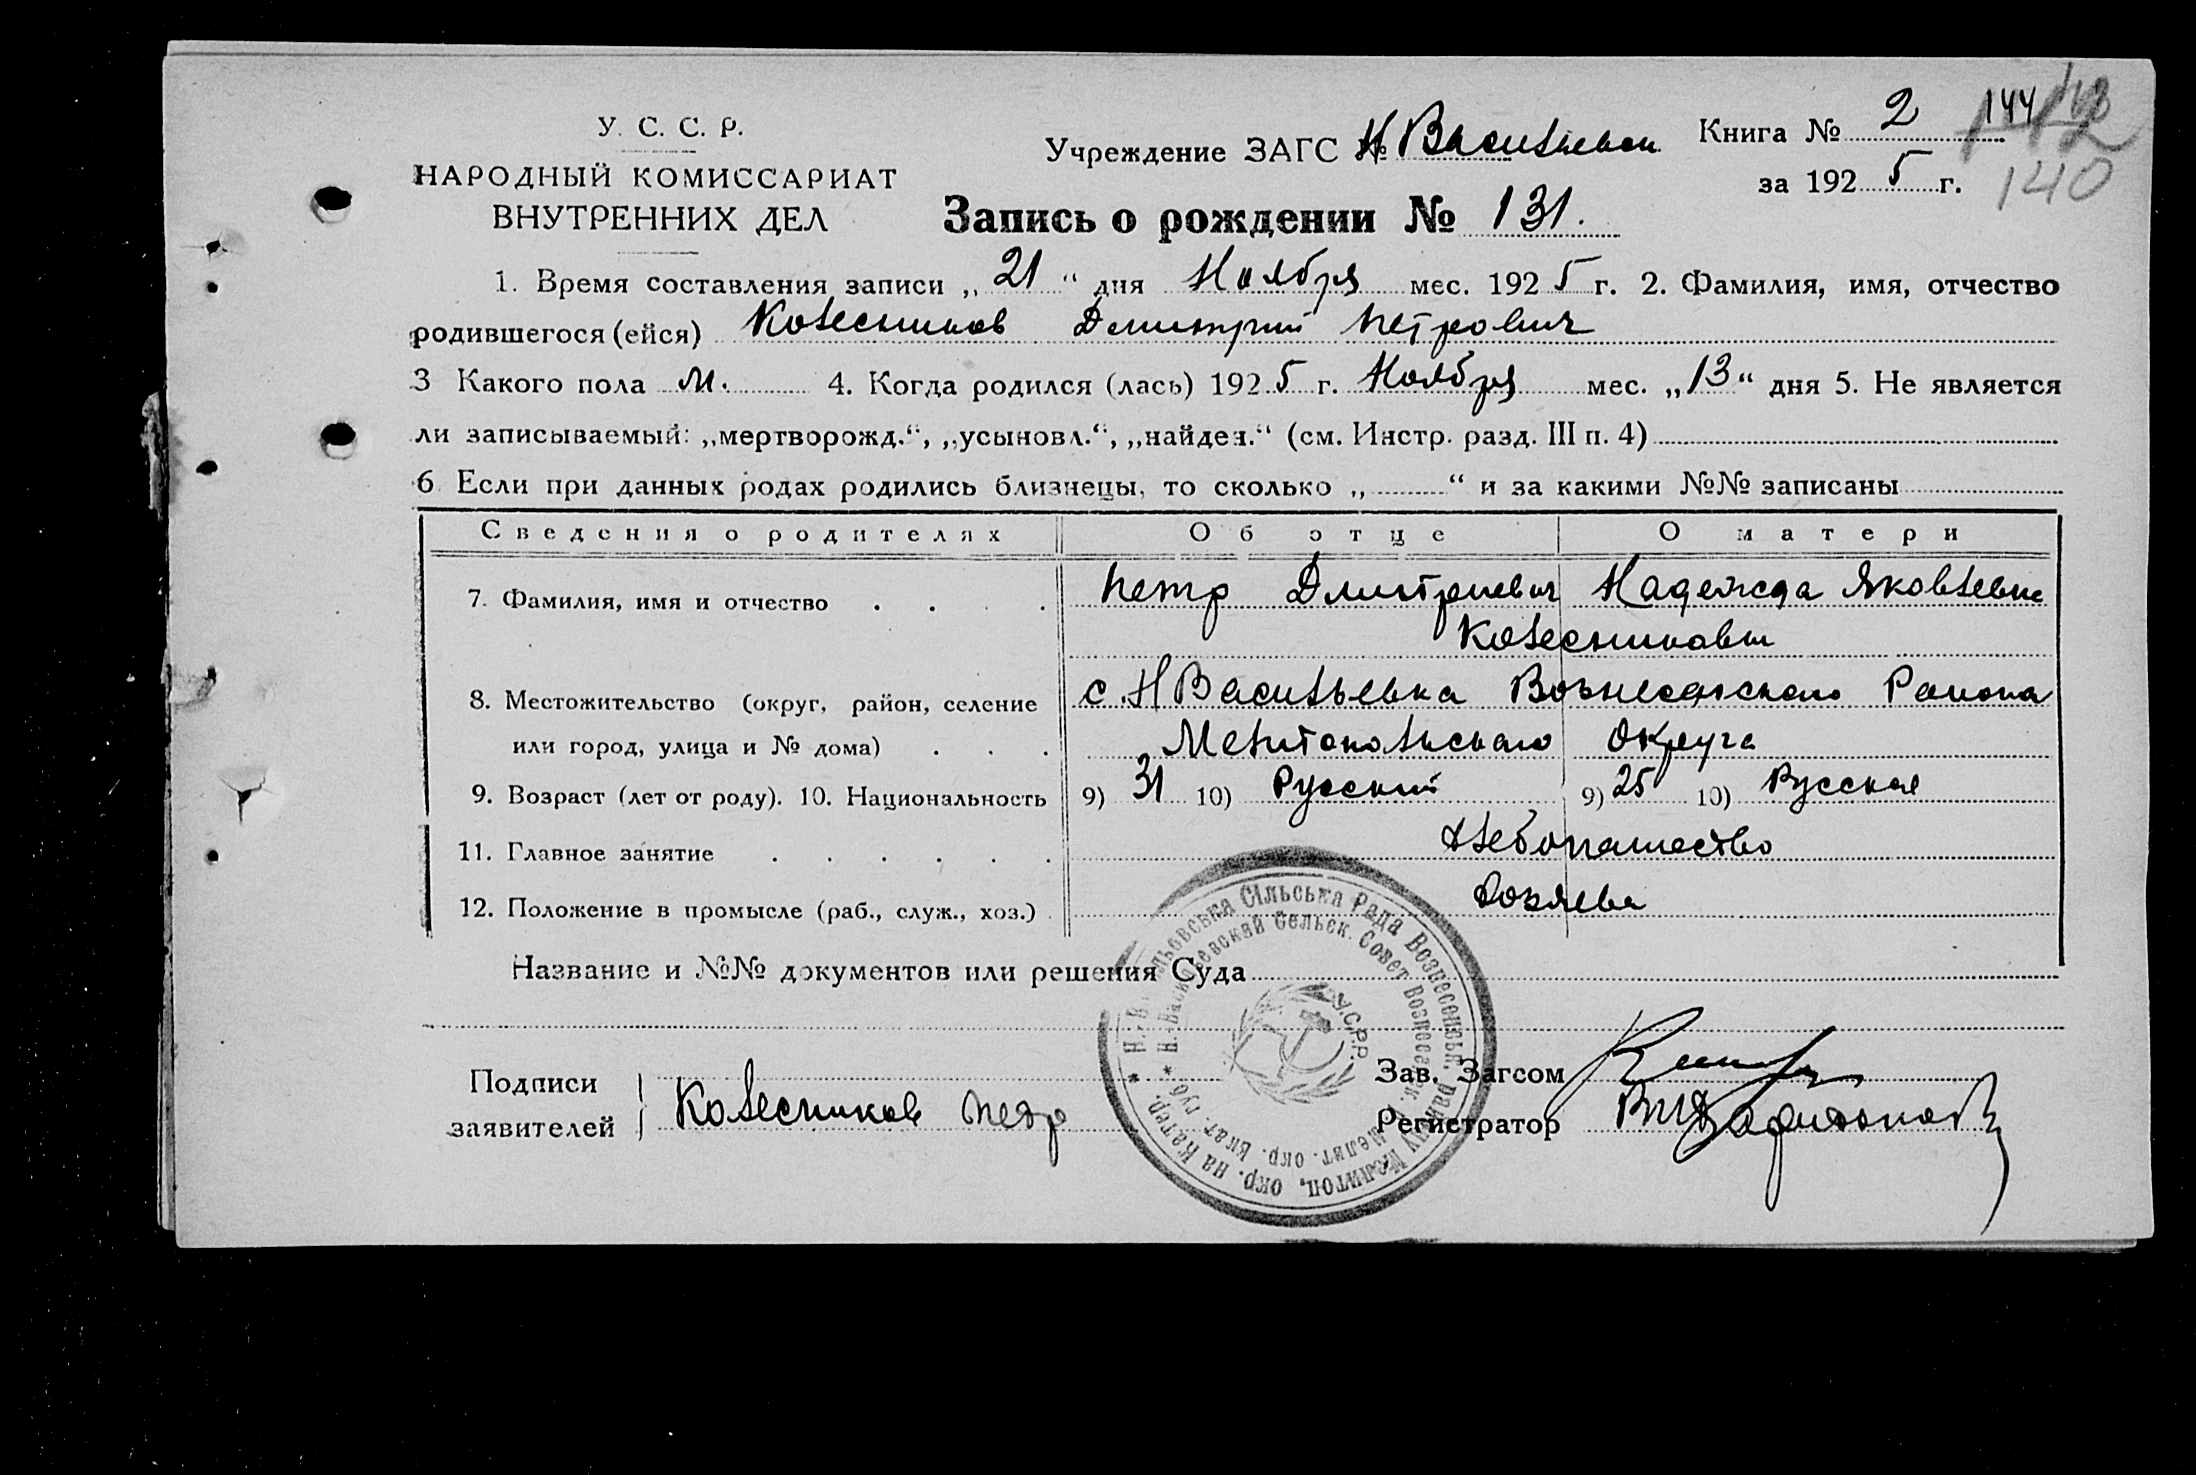 У. С. С. Р.
НАРОДНЫЙ КОМИССАРИАТ
ВНУТРЕННИХ ДЕЛ
Учреждение ЗАГС № Н Васильевск
Книга № 2 144
за 1925 г. 140
Запись о рождении № 131.
1. Время составления записи „21“ дня Ноября мес. 1925 г. 2. Фамилия, имя, отчество
родившегося (ейся) Колесников Димитрий Петрович
3 Какого пола м. 4. Когда родился (лась) 1925 г. Ноября мес. „13“ дня 5. Не является
ли записываемый: „мертворожд.“, „усыновл.“, „найден.“ (см. Инстр. разд. III п. 4)
6 Если при данных родах родились близнецы, то сколько „ “ и за какими №№ записаны
Сведения о родителях Об отце О матери
7. Фамилия, имя и отчество Петр Дмитриевич Надежда Яковлевна
Колесниковы
8. Местожительство (округ, район, селение с. Н Васильевка Вознесенского Района
или город, улица и № дома) Мелитопольского Округа
9. Возраст (лет от роду). 10. Национальность 9) 31 10) Русский 9) 25 10) Русская
11. Главное занятие Хлебопашество
12. Положение в промысле (раб., служ., хоз.) Хозяева
Название и №№ документов или решения Суда
Подписи
заявителей
Колесников Петр
Зав. Загсом
Регистратор
Сільська Рада Вознесенськ. району Мелитоп. окр. на Катер.
Н.-Васильевскай Сельск. Совет Вознесенск. Мелит. окр. Екат. губ.
У.С.Р.Р.